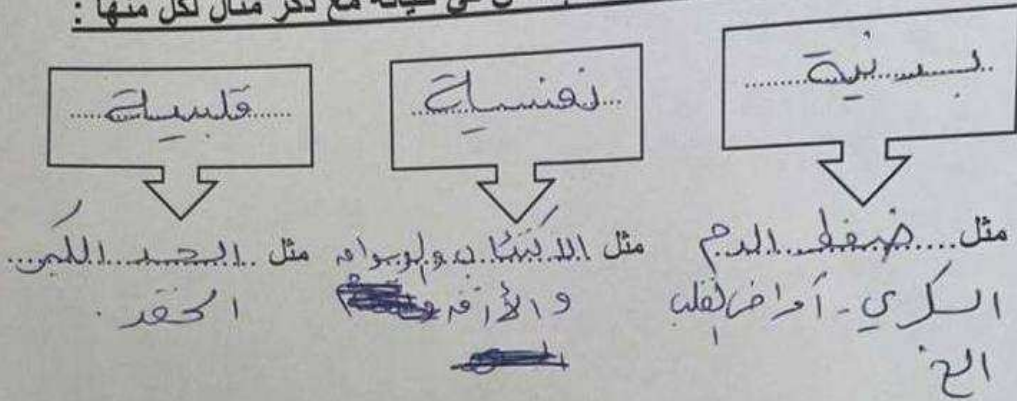 في حياته مع ذكر مثال لكل منها :
بدنية
نفسية
قلبية
مثل ضغط الدم
السكري - أمراض القلب
الخ
مثل الاكتئاب والوسواس
والأرق
مثل الحسد الكبر
الحقد .